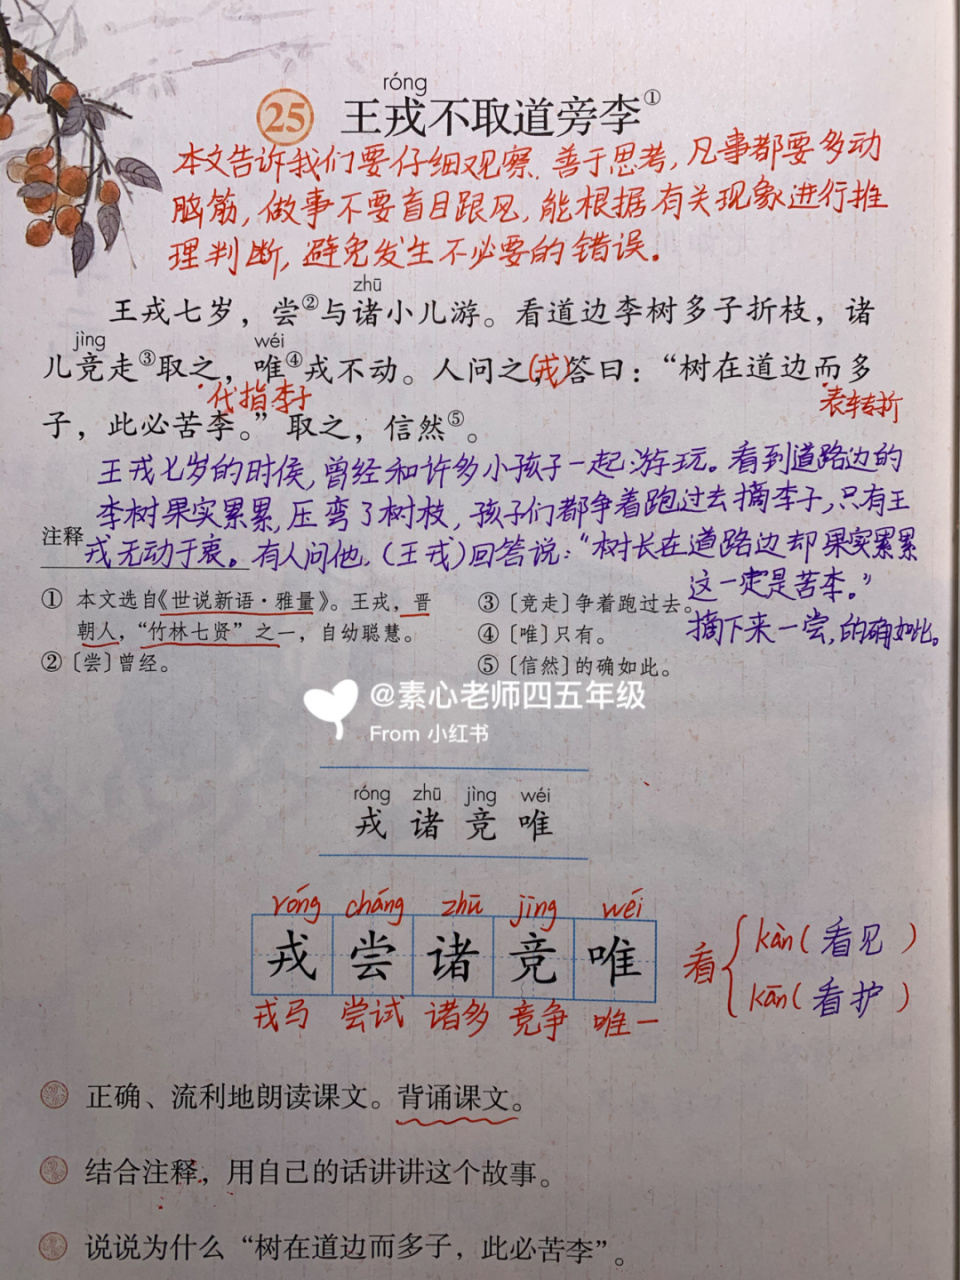 róng
25 王戎不取道旁李①
本文告诉我们要仔细观察、善于思考,凡事都要多动
脑筋,做事不要盲目跟风,能根据有关现象进行推
理判断,避免发生不必要的错误。
zhū
王戎七岁，尝②与诸小儿游。看道边李树多子折枝，诸
jìng wéi
儿竞走③取之，唯④戎不动。人问之，(戎)答曰：“树在道边而多
代指李子 表转折
子，此必苦李。”取之，信然⑤。
王戎七岁的时侯,曾经和许多小孩子一起游玩。看到道路边的
李树果实累累,压弯了树枝,孩子们都争着跑过去摘李子,只有王
戎无动于衷。有人问他,(王戎)回答说:“树长在道路边却果实累累
这一定是苦李。”
摘下来一尝,的确如此。
注释
① 本文选自《世说新语·雅量》。王戎，晋
朝人，“竹林七贤”之一，自幼聪慧。
②〔尝〕曾经。
③〔竞走〕争着跑过去。
④〔唯〕只有。
⑤〔信然〕的确如此。
@素心老师四五年级
From 小红书
róng zhū jìng wéi
戎 诸 竞 唯
róng cháng zhū jìng wéi
戎 尝 诸 竞 唯
戎马 尝试 诸多 竞争 唯一
看 kàn(看见)
kān(看护)
正确、流利地朗读课文。背诵课文。
结合注释，用自己的话讲讲这个故事。
说说为什么“树在道边而多子，此必苦李”。